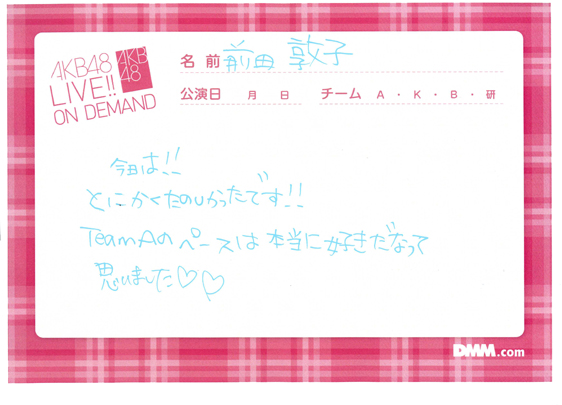 AKB48
LIVE!!
ON DEMAND
AKB
48
名前 前田 敦子
公演日 月 日 チーム A・K・B・研
今日は!!
とにかくたのしかったです!!
TeamAのペースは本当に好きだなって
思いました♡♡
DMM.com